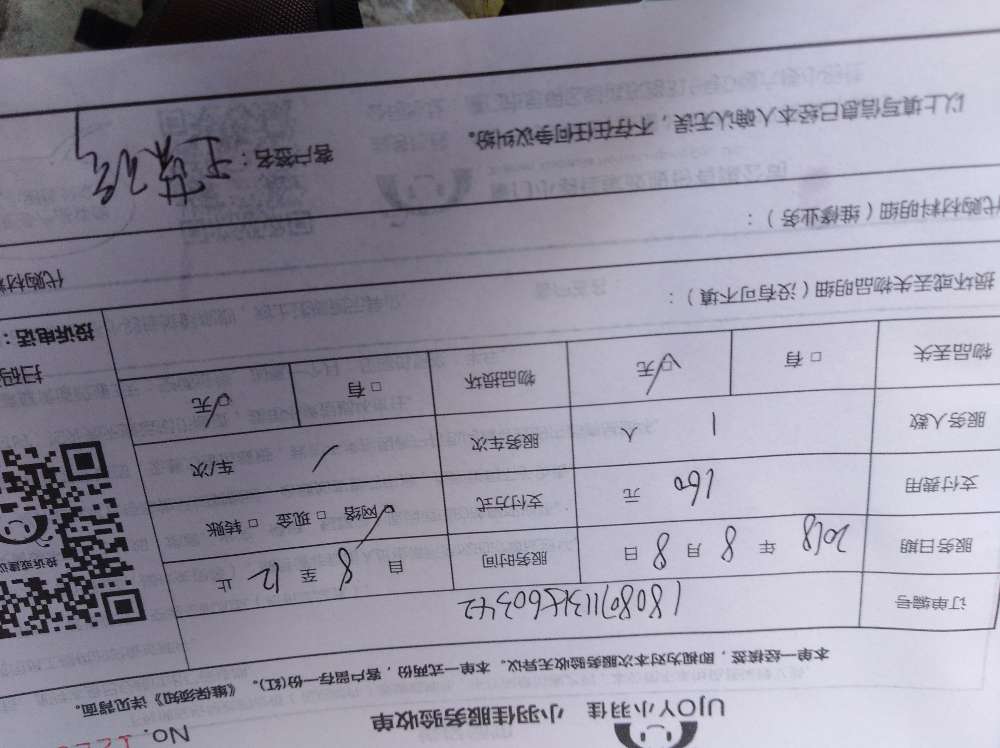 UJOY小羽佳 小羽佳服务验收单 No.
本单一经核签，即视为对本次服务验收无异议。本单一式两份，客户留存一份(红)。《维保须知》详见背面。
订单编号
服务日期 2018 年 8 月 8 日 服务时间 自 8 至 12 止
支付费用 160 元 支付方式 ☑ 网络 □ 现金 □ 转账
服务人数 1 人 服务车次 / 车/次
物品丢失 □ 有 ☑ 无 物品损坏 □ 有 ☑ 无
投诉或建议
扫码
投诉电话：
损坏或丢失物品明细（没有可不填）：
代购材料明细（维修业务）： 代购材料
以上填写信息已经本人确认无误，不存在任何争议纠纷。 客户签名：